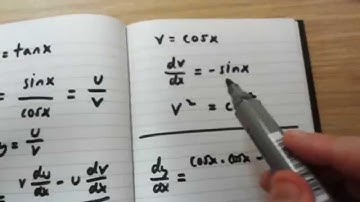 = tanx
= sinx/cosx = u/v
y = u/v
v du/dx - u dv/dx
v = cosx
dv/dx = -sinx
v² =
dy/dx = cosx · cosx -